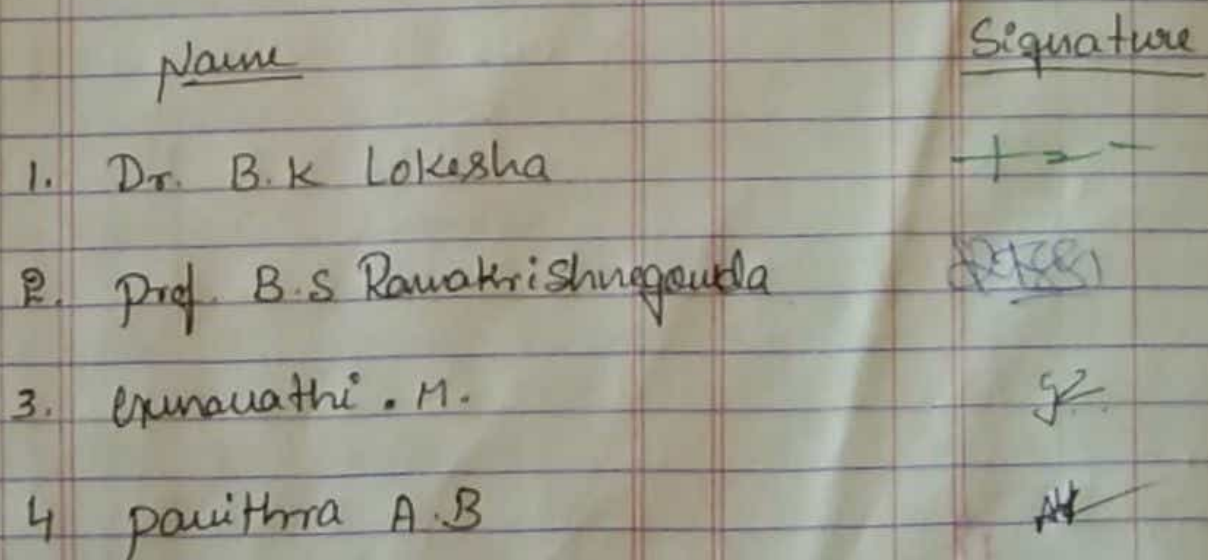 Name Signature
1. Dr. B.K Lokesha
2. Prof. B.S Ramakrishnegowda
3. M.
4 Pavithra A.B